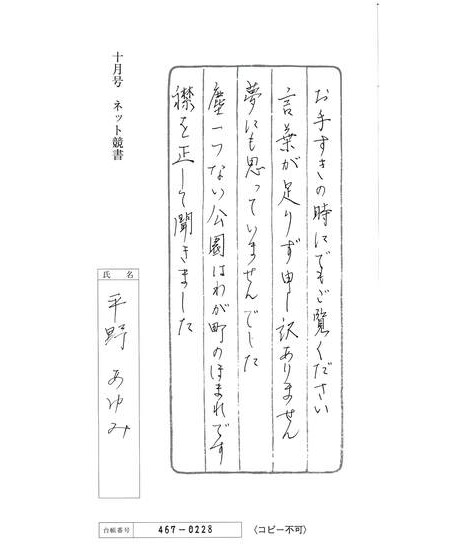 お手すきの時にでもご覧ください
言葉が足りず申し訳ありません
夢にも思っていませんでした
塵一つない公園はわが町のほまれです
襟を正して聞きました
十月号 ネット競書
氏名
平野 あゆみ
台帳番号 467-0228 〈コピー不可〉